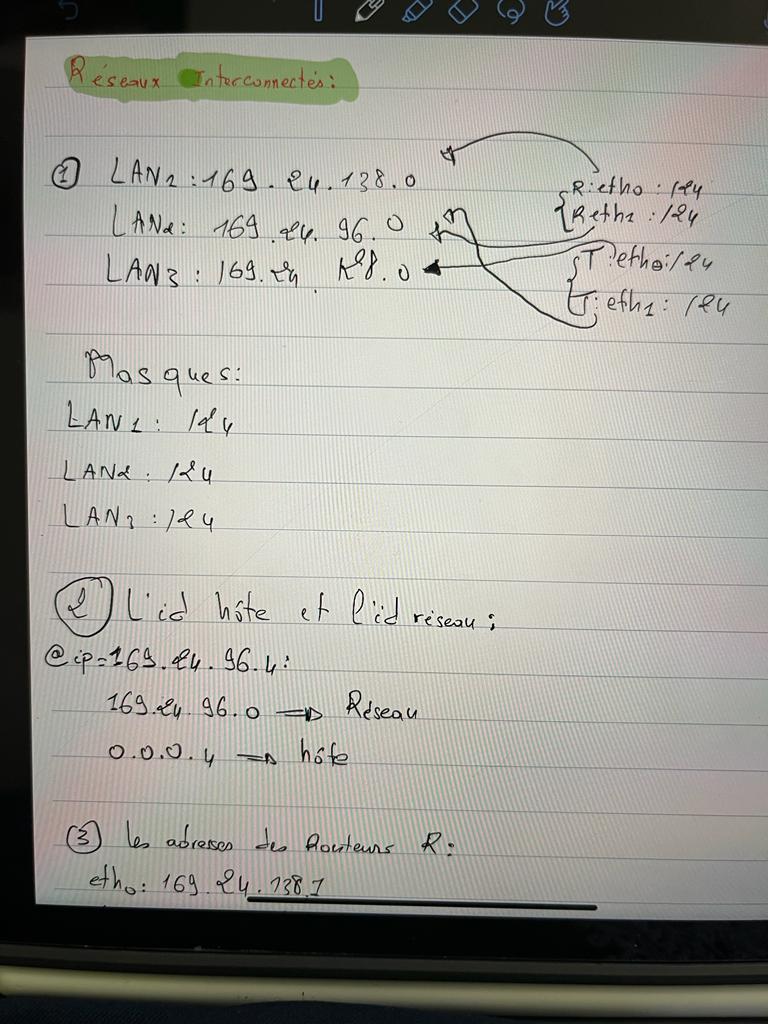 Réseaux Interconnectés:
① LAN1 : 169.24.138.0
R: eth0 : /24
LAN2: 169.24.96.0
R eth1 : /24
LAN3 : 169.24. 128.0
T: eth0: /24
T: eth1 : /24
Masques:
LAN1 : /24
LAN2 : /24
LAN3 : /24
② L'id hôte et l'id réseau :
@ip=169.24.96.4:
169.24.96.0 ⇒ Réseau
0.0.0.4 ⇒ hôte
③ les adresses des Routeurs R:
eth0: 169.24.138.1